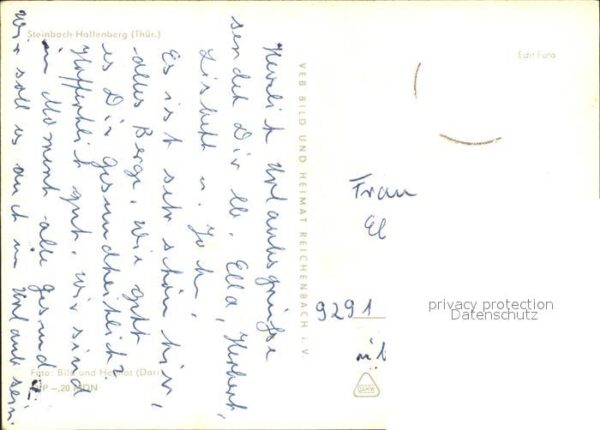 Steinbach-Hallenberg (Thür.)
Herzlich Urlaubsgrüße
sendet Dir lb. Ella, Herbert,
Lisbeth u.
Es ist sehr schön hier,
alles Berge, wie geht
es Dir gesundheitlich?
Hoffentlich gut, wir sind
im Moment alle gesund
Wie soll es auch im Urlaub sein
VEB BILD UND HEIMAT REICHENBACH i. V.
Echt Foto
Frau
El
9291
privacy protection
Datenschutz
Foto: Bild und Heimat (Darr)
EVP -,20 MDN